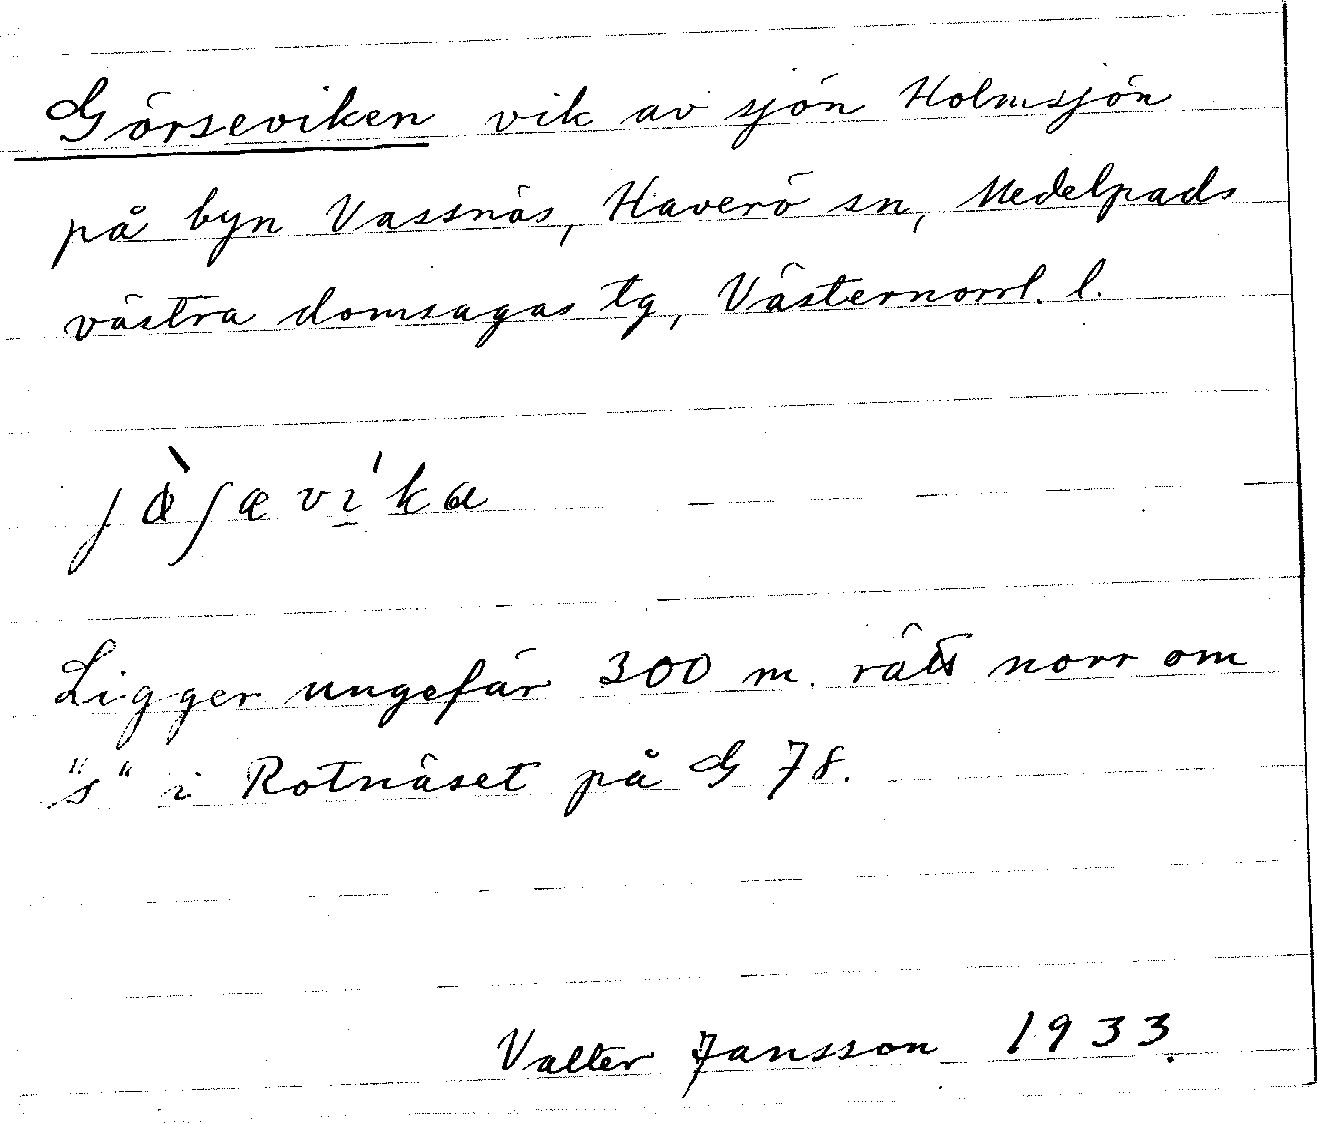 Görseviken vik av sjön Holmsjön
på byn Vassnäs, Haverö sn, Medelpads
västra domsagas tg, Västernorrl. l.
Ligger ungefär 300 m. rätt norr om
"s" i Rotnäset på G 78.
Valter Jansson 1933.